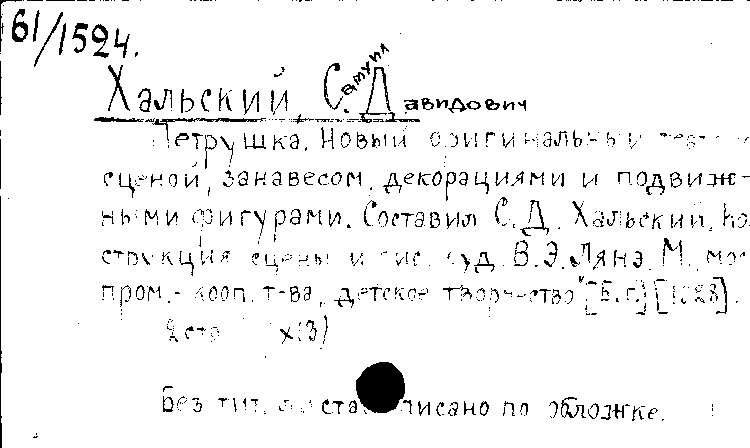 61/1524.
Хальский, С.амуил Д.авидович
Петрушка. Новый оригинальный театр со
сценой, занавесом, декорациями и подвиж-
ными фигурами. Составил С.Д. Хальский, Кон
струкция сцены и рис. худ. В.Э. Лянэ. М., мос
пром.-кооп. т-ва „детское творчество" [Б.г.] [1928].
2 стр.
Без тит. листа. Описано по обложке.